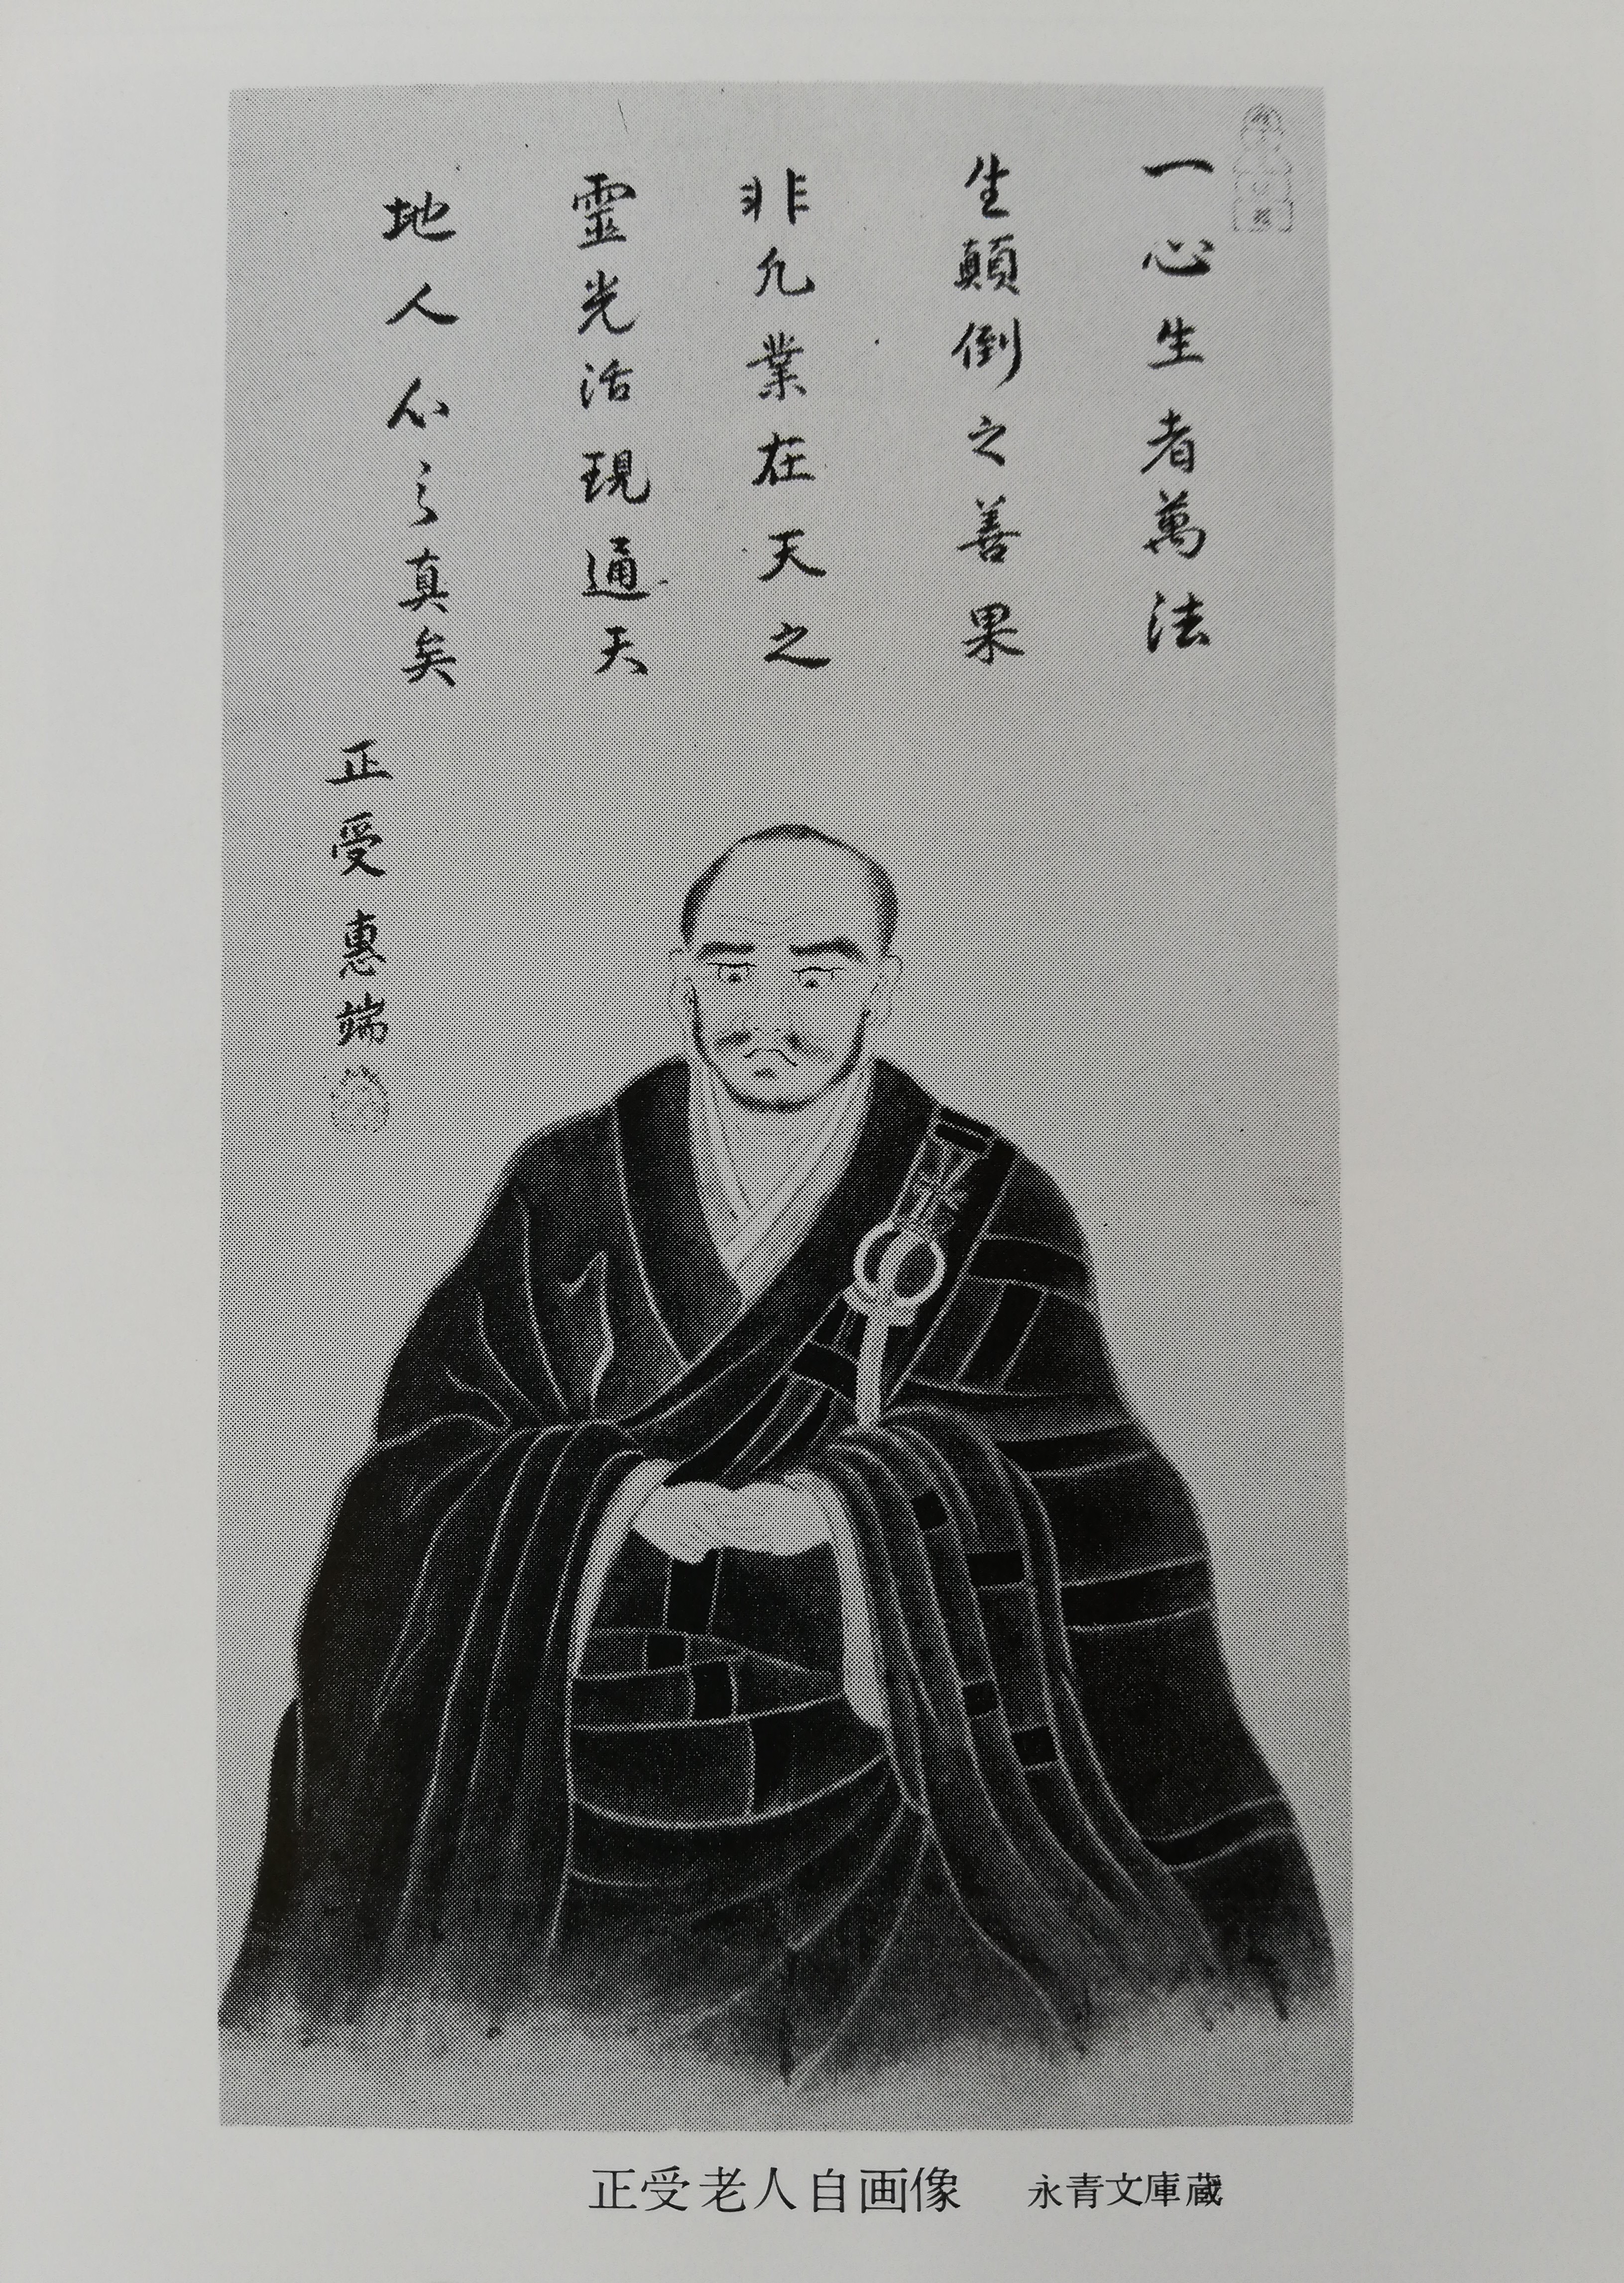 一心生者萬法
生顛倒之善果
非凢業在天之
靈光活現通天
地人心之真矣
正受惠端
正受老人自画像　永青文庫蔵